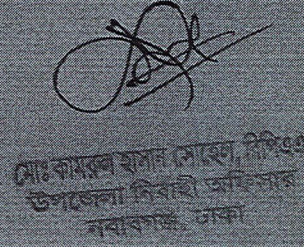 মোঃ কামরুল হাসান সোহেল, বিপিএএ
উপজেলা নির্বাহী অফিসার
নবাবগঞ্জ, ঢাকা